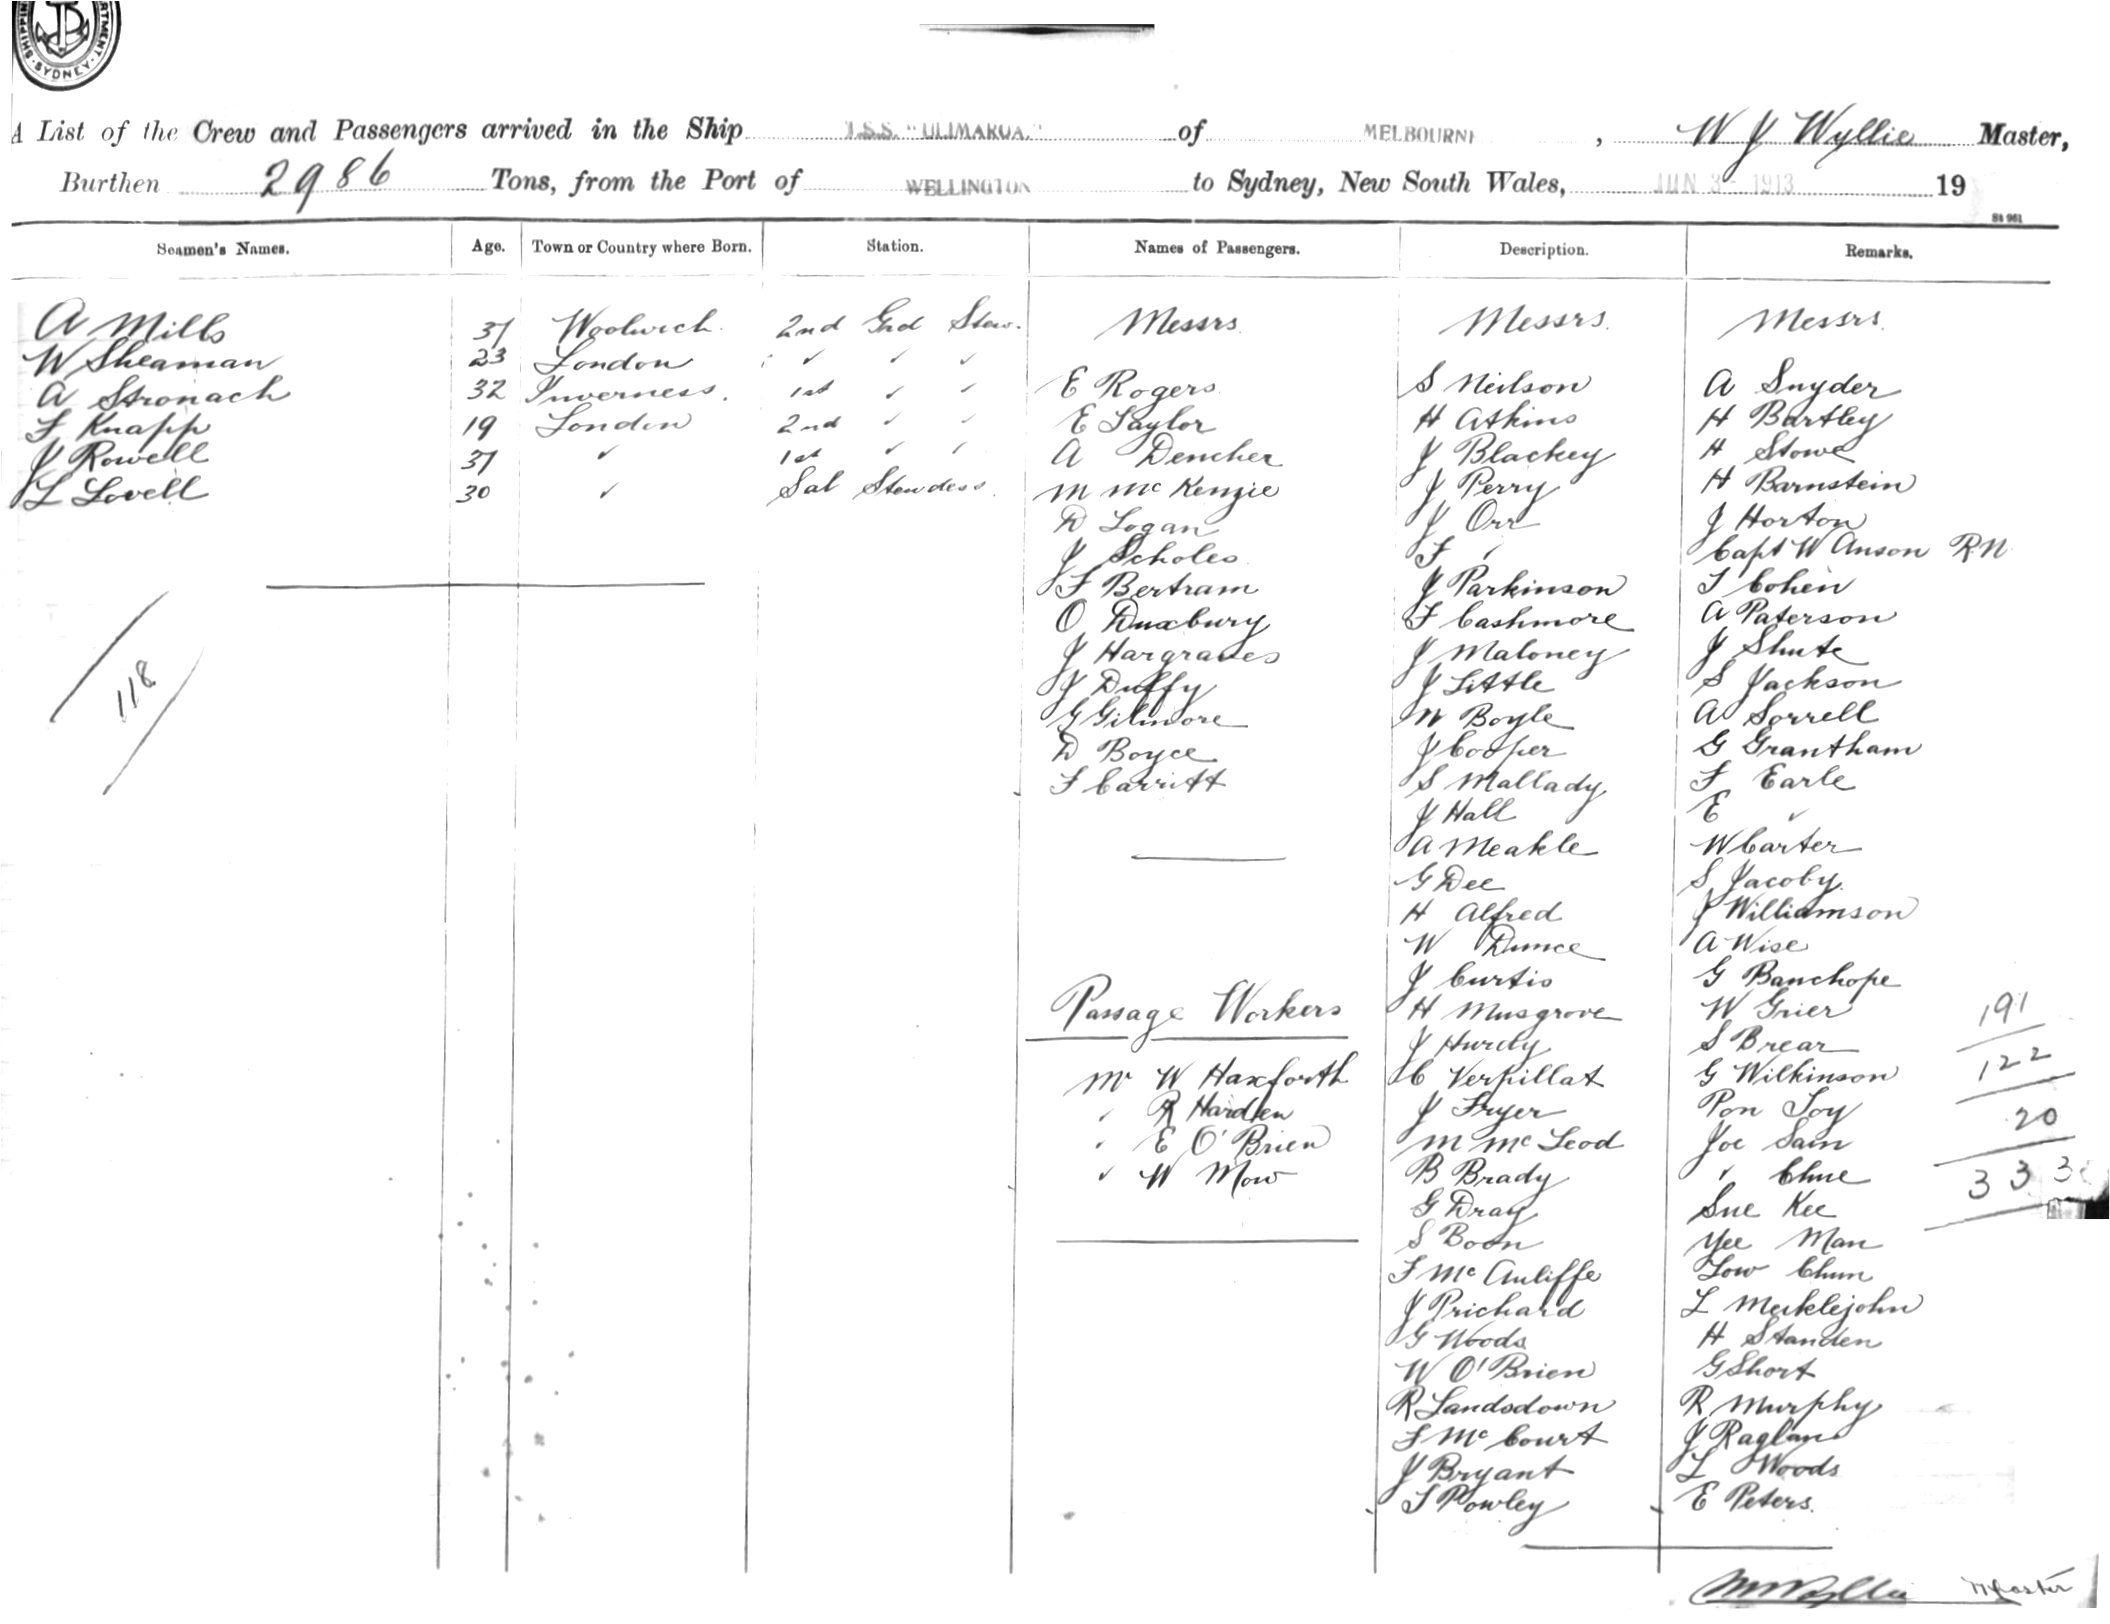 SHIPPING DEPARTMENT SYDNEY
A List of the Crew and Passengers arrived in the Ship T.S.S. "ULIMAROA." of MELBOURNE, W J Wyllie Master,
Burthen 2986 Tons, from the Port of WELLINGTON to Sydney, New South Wales, JUN 3 - 1913 19
St 961
Seamen's Names. Age. Town or Country where Born. Station. Names of Passengers. Description. Remarks.
A Mills 31 Woolwich. 2nd Grd Stew.
W Sheaman 23 London ✓ ✓ ✓
A Stronach 32 Inverness. 1st ✓ ✓
F Knapp 19 London 2nd ✓ ✓
J Rowell 31 ✓ 1st ✓ ✓
L Lovell 30 ✓ Sal Stewdess.
118
Messrs.
E Rogers
E Taylor
A Dencher
M McKenzie
D Logan
J Scholes
F Bertram
O Duxbury
J Hargraves
J Duffy
G Gilmore
D Boyce
F Carritt
Passage Workers
Mr W Haxforth
✓ R Harden
✓ E O'Brien
✓ W Mow
Messrs.
S Neilson
H Atkins
J Blackey
J Perry
J Orr
F ✓
J Parkinson
F Cashmore
J Maloney
J Little
W Boyle
J Cooper
S Mallady
J Hall
A Meakle
G Dee
H Alfred
W Dunce
J Curtis
H Musgrove
J Hurdy
C Verpillat
J Fryer
M McLeod
B Brady
G Dray
S Boon
F McAuliffe
J Prichard
G Woods
W O'Brien
R Landsdown
F McCourt
J Bryant
T Powley
Messrs.
A Snyder
H Bartley
H Stowe
H Barnstein
J Horton
Capt W Anson RN
T Cohen
A Paterson
J Shute
S Jackson
A Sorrell
G Grantham
F Earle
E ✓
W Carter
S Jacoby.
J Williamson
A Wise
G Banchope
W Grier
S Brear
G Wilkinson
Pon Toy
Joe Sam
✓ Chue
Sue Kee
Yee Man
Low Chum
L Meiklejohn
H Standen
G Short
R Murphy
J Raglan
L Woods
E Peters.
191
122
20
333
Wyllie Master